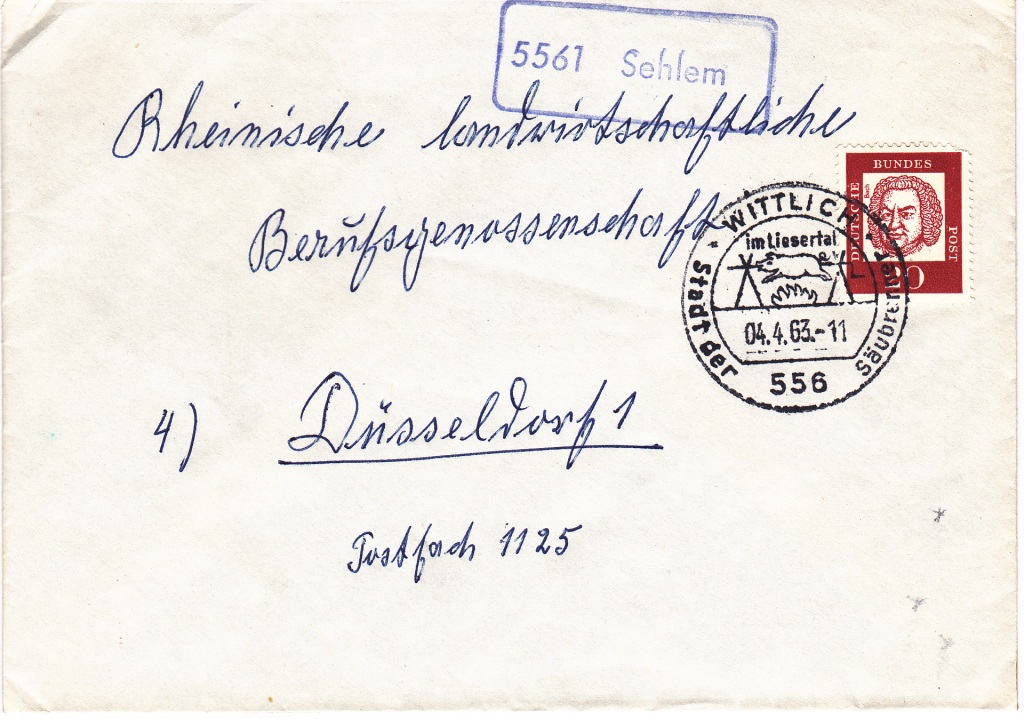 5561 Sehlem
Rheinische landwirtschaftliche
Berufsgenossenschaft
BUNDES
DEUTSCHE
POST
20
WITTLICH
im Liesertal
04.4.63.-11
Stadt der Säubrenner
556
4) Düsseldorf 1
Postfach 1125